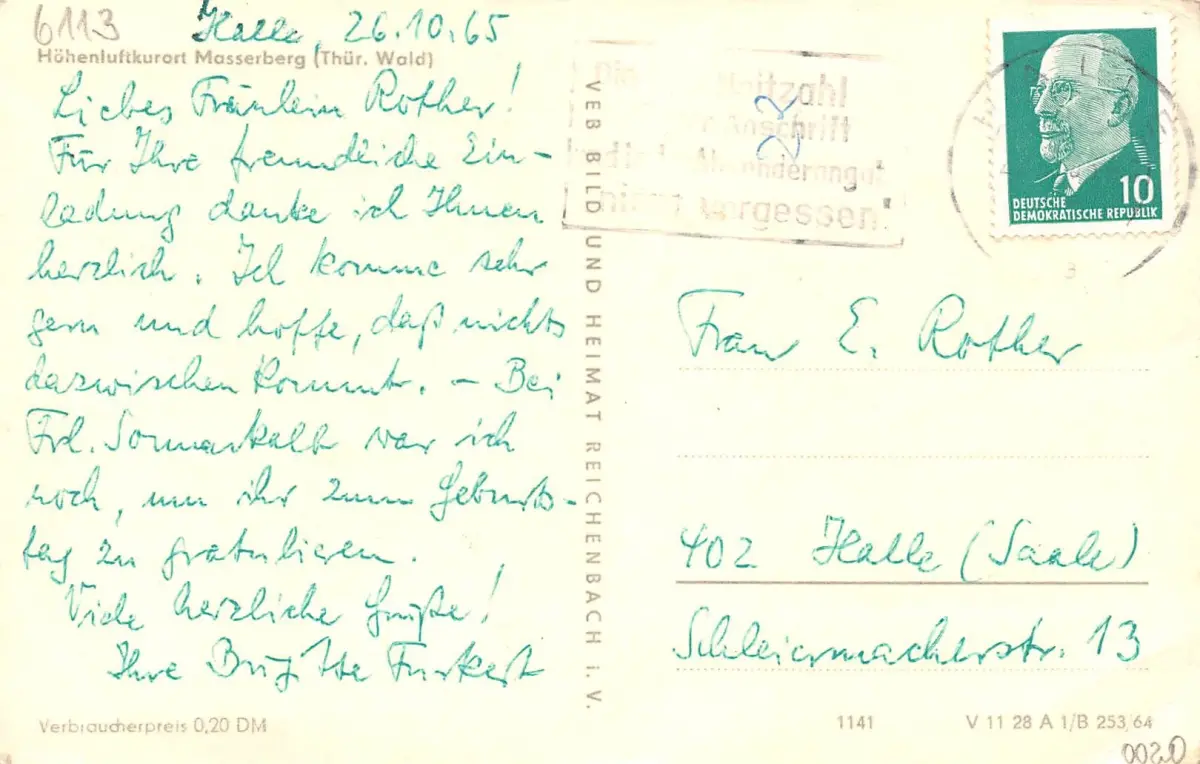 6113
Halle, 26.10.65
Höhenluftkurort Masserberg (Thür. Wald)
Liebes Fräulein Rother!
Für Ihre freundliche Ein-
ladung danke ich Ihnen
herzlich. Ich komme sehr
gern und hoffe, daß nichts
dazwischen kommt. – Bei
Frl. war ich
noch, um ihr zum Geburts-
tag zu gratulieren.
Viele herzliche Grüße!
Ihre Brigitte Furkert
Verbraucherpreis 0,20 DM
VEB BILD UND HEIMAT REICHENBACH i. V.
Leitzahl
Anschrift
vergessen!
22
10
DEUTSCHE
DEMOKRATISCHE REPUBLIK
3
Frau E. Rother
402 Halle (Saale)
Schleiermacherstr. 13
1141
V 11 28 A 1/B 253/64
0020